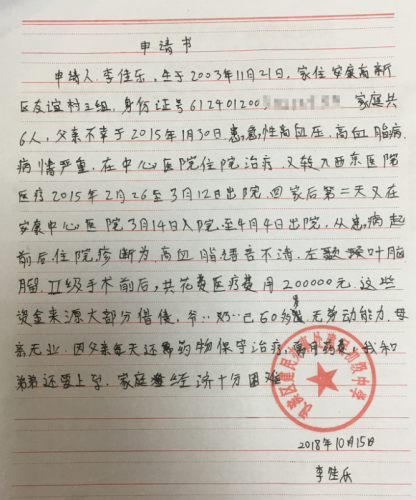 申请书
申请人,李佳乐,生于2003年11月21日,家住安康高新
区友谊村三组,身份证号612401200 家庭共
6人,父亲不幸于2015年1月30日患急性高血压,高血脂病
病情严重,在中心医院住院治疗,又转入西京医院
医疗2015年2月26至3月12日出院,回家后第二天又在
安康中心医院3月14日入院,至4月4日出院,从患病起
前后住院,诊断为,高血脂语言不清,左额颞叶脑
瘤Ⅱ级手术前后,共花费医疗费用200000元,这些
资金来源大部分借债,爷爷奶奶已60多岁无劳动能力,母
亲无业,因父亲每天还需药物保守治疗,需用药费,我和
弟弟还要上学,家庭经济十分困难
2018年10月15日
李佳乐
汉滨区建民初级中学